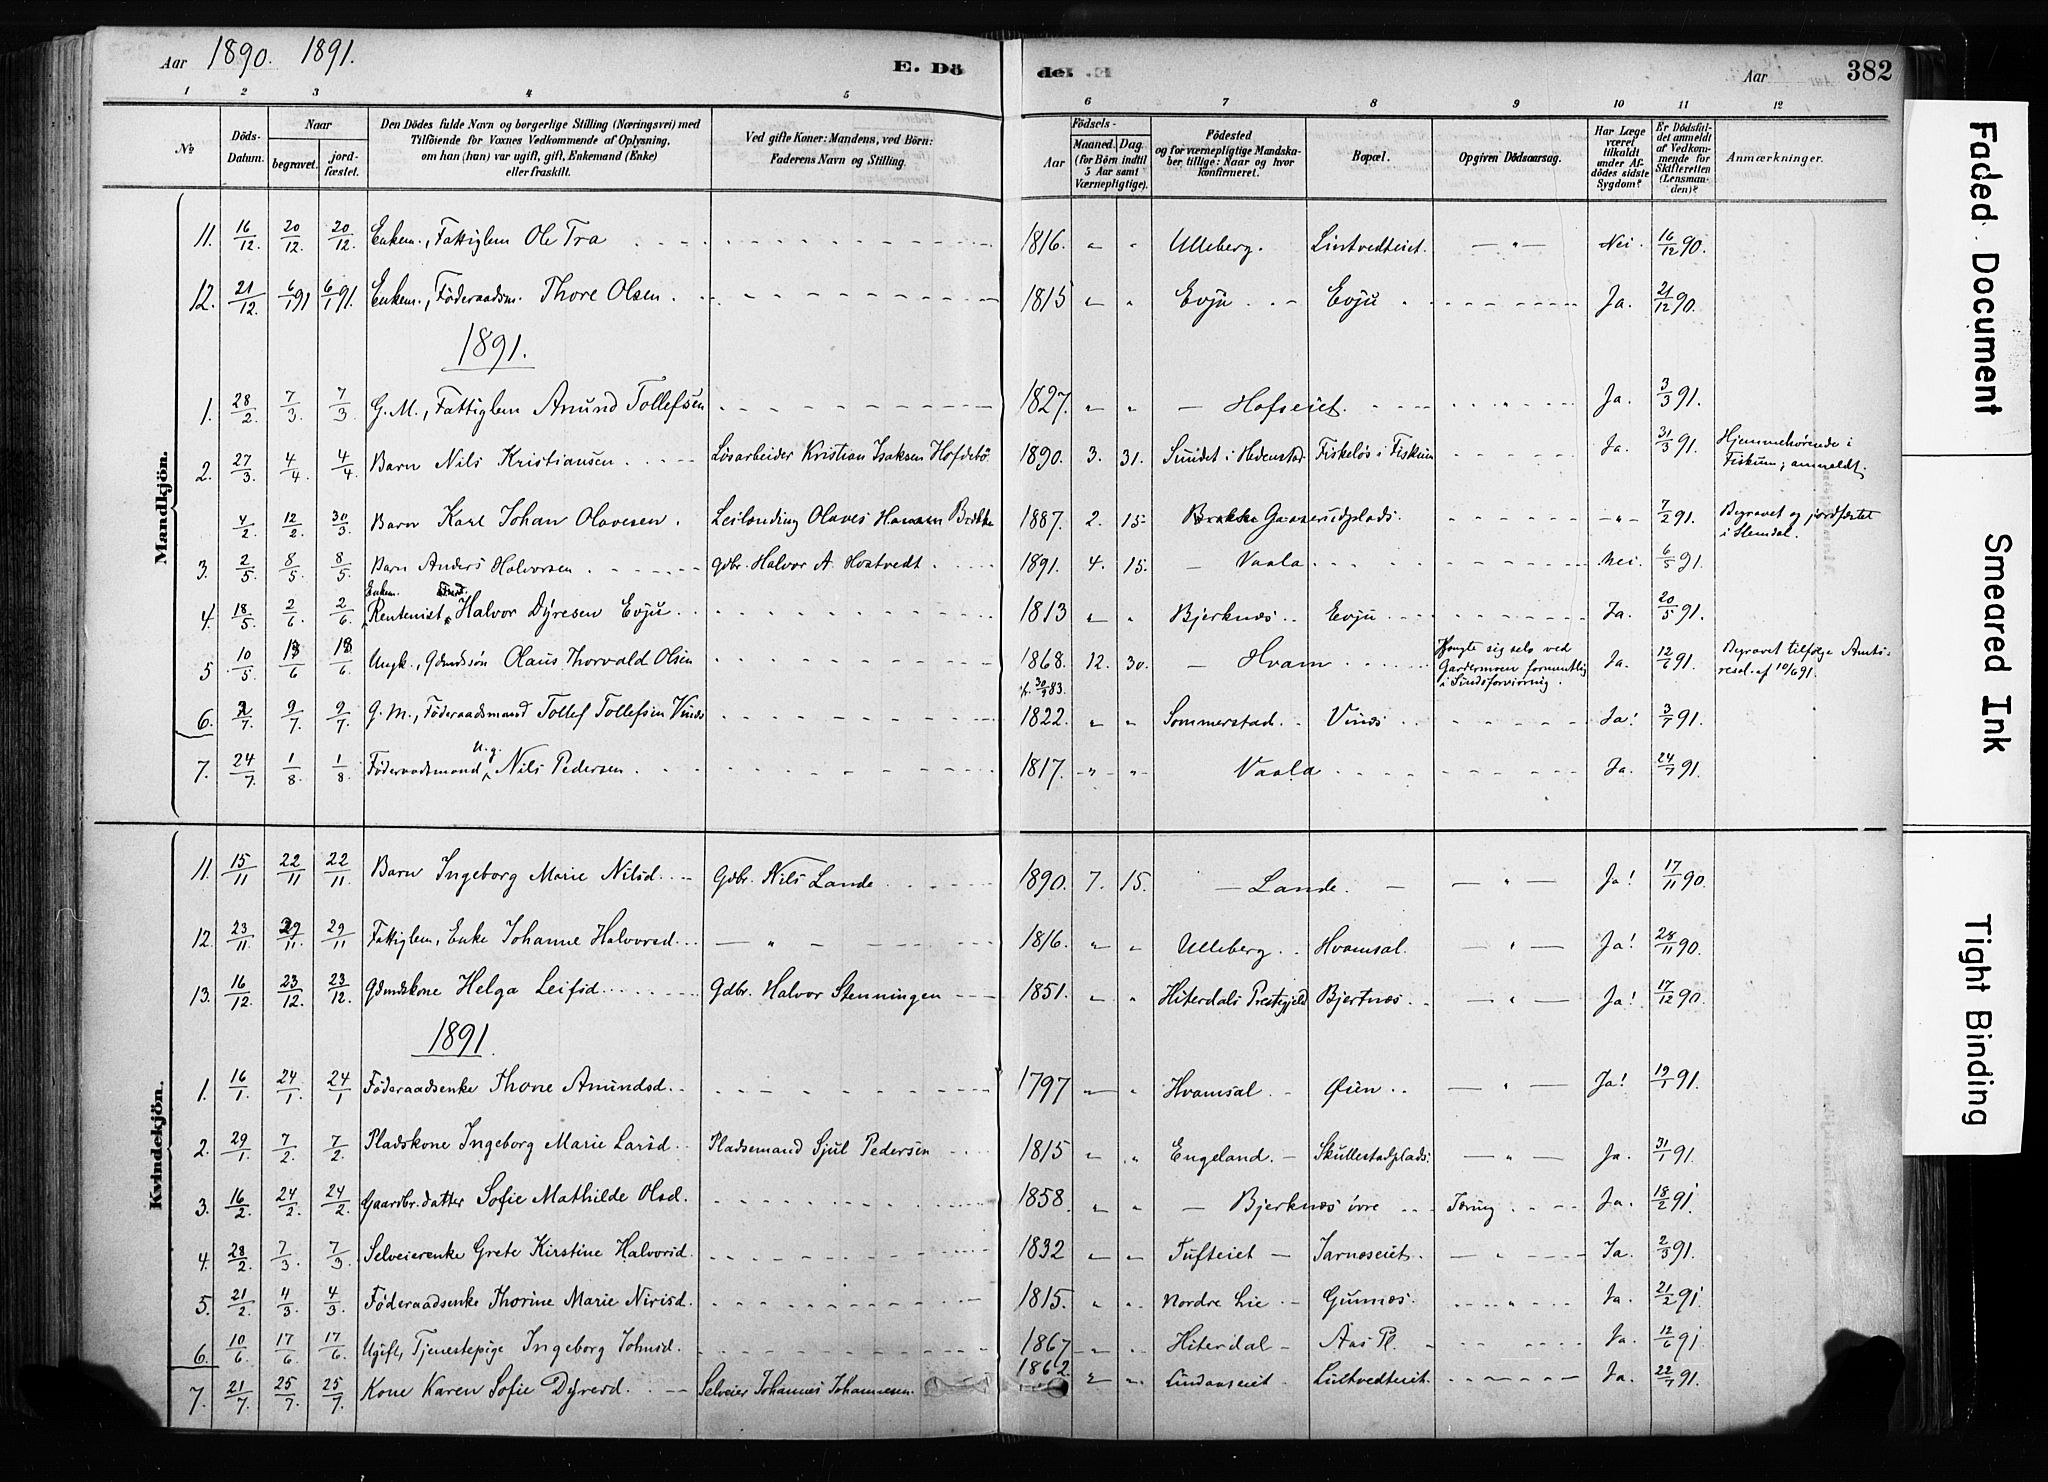 Aar 1890. 1891.
E. Dö
de. E
Aar
382
1 2 3 4 5 6 7 8 9 10 11 12
No
Döds-Datum.
Naar
begravet.
jord-fæstet.
Den Dödes fulde Navn og borgerlige Stilling (Næringsvei) med
Tilföiende for Voxnes Vedkommende af Oplysning,
om han (hun) var ugift, gift, Enkemand (Enke)
eller fraskilt.
Ved gifte Koner: Mandens, ved Börn:
Faderens Navn og Stilling.
Födsels-
Aar
Maaned. Dag.
(for Börn indtil
5 Aar samt
Værnepligtige).
Födested
og for værnepligtige Mandska-
ber tillige: Naar og hvor
konfirmeret.
Bopæl.
Opgiven Dödsaarsag.
Har Læge
været
tilkaldt
under Af-
dödes sidste
Sygdom?
Er Dödsfal-
det anmeldt
af Vedkom-
mende for
Skifteretten
(Lensman-
den)?
Anmærkninger.
Mandkjön.
11. 16/12 20/12 20/12 Enkem., Fattiglem Ole Tra 1816. " " Ulleberg. Lintvedteiet. — " — Nei. 16/12 90.
12. 21/12 6/1 91 6/1 91. Enkem., Föderaadsm. Thore Olsen. 1815 " " Evju Evju Ja. 21/12 90.
1891.
1. 28/2 7/3 7/3 G. M., Fattiglem Anund Tollefsen 1827. " " — Hofseiet. Ja. 3/3 91.
2. 27/3 4/4 4/4 Barn Nils Kristiansen Lösarbeider Kristian Isaksen Hofdebö. 1890. 3. 31. Sundet i Hedenstad. Fiskelös i Fiskum Ja. 31/3 91. Hjemmehörende i
Fiskum; anmeldt.
4/2 12/2 30/3 Barn Karl Johan Olavesen. Leilending Olaves Hansen Brekke 1887. 2. 15. Gaaserudplads. — " — 7/2 91. Begravet og jordfæstet
i Hemdal.
3. 2/5 8/5 8/5 Barn Anders Halvorsen Gdbr. Halvor A. Hostvedt. 1891. 4. 15. — Vaala Nei. 6/5 91.
Enkem.
4. 18/5 2/6 2/6 Rentenist Halvor Dÿresen Evju 1813 " " Bjerknæs. Evju. Ja. 20/5 91.
5 10/5 13/6 13/6 Ungk., Gdmdssön Olaus Thorvald Olsen 1868. 12. 30. — Hvam Hængte sig selv ved
Gardermoen formentlig
i Sindsforvirring. Ja. 12/6 91. Begravet tilfölge Amts-
resol. af 10/6 91.
6. 2/7 9/7 9/7 G. M., Föderaadsmand Tollef Tollefsen Vinæs 1822. " " Sommerstad. Vinæs Ja! 3/7 91.
u. g.
7. 24/7 1/8 1/8 Föderaadsmand Nils Pedersen 1817. " " Vaala Ja. 24/7 91.
Kvindekjön.
11. 15/11 22/11 22/11 Barn Ingeborg Marie Nilsd. Gdbr. Nils Lande 1890. 7. 15. — Lande. — — " — Ja! 17/11 90.
12. 23/11 29/11 29/11 Fattiglem, Enke Johanne Halvorsd. — " — 1816. " " Ulleberg. Hvamsal. — " — Ja! 28/11 90.
13. 16/12 23/12 23/12 Gdmdskone Helga Leifsd. Gdbr. Halvor Stenningen 1851. " " Hiterdals Prestegjeld Bjertnæs — " — Ja! 17/12 90.
1891.
1. 16/1 24/1 24/1 Föderaadsenke Thone Anundsd. 1797 " " Hvamsal. Øien — " — Ja! 19/1 91.
2. 29/1 7/2 7/2 Pladskone Ingeborg Marie Larsd. Pladsemand Sjul Pedersen 1815 " " Engeland. Skullestadplads. — " — Ja. 31/1 91.
3. 16/2 24/2 24/2 Gaardbr. datter Sofie Mathilde Olsd. 1858. " " — Bjerknæs övre Tæring Ja. 18/2 91.
4. 28/2 7/3 7/3 Selveierenke Grete Kirstine Halvorsd. 1832 " " Tufteiet Jarnæseiet. — " — Ja. 2/3 91.
5. 21/2 4/3 4/3 Föderaadsenke Thorine Marie Nirisd. 1815. " " Nordre Lie Gunnæs. " Ja. 21/2 91.
6. 10/6 17/6 17/6 Ugift, Tjenestepige Ingeborg Johnsd. 1867 " Hiterdal Aas Pl. Ja. 12/6 91
7. 21/7 25/7 25/7 Kone Karen Sofie Dÿresd. Selveier Johannes Johannesen 1862. " " Lindaaseiet Lintvedteiet. Ja. 22/7 91.
Faded Document
Smeared Ink
Tight Binding